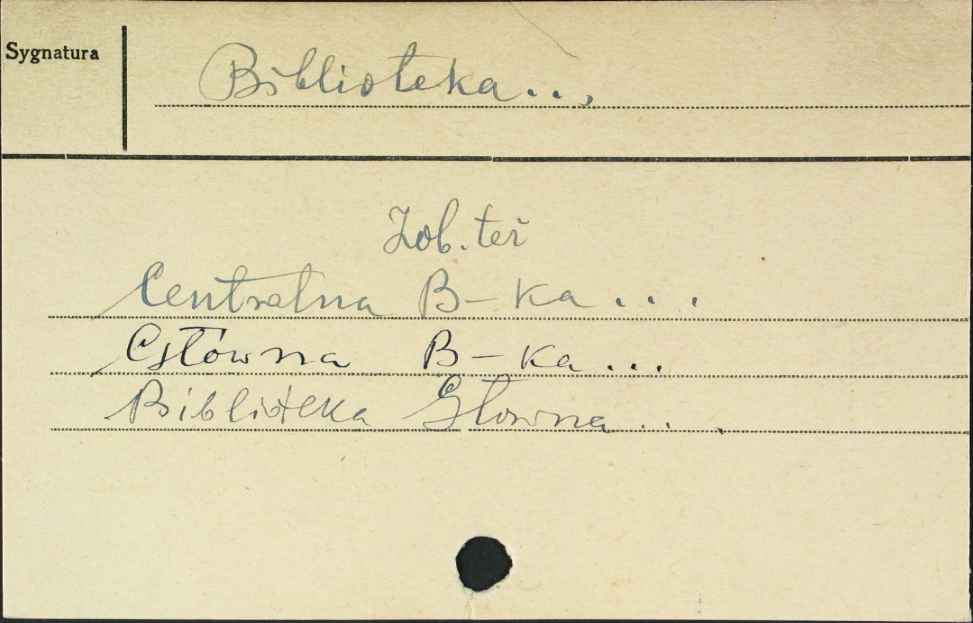 Sygnatura
Biblioteka...
Zob. też
Centralna B-ka...
Główna B-ka...
Biblioteka Główna...